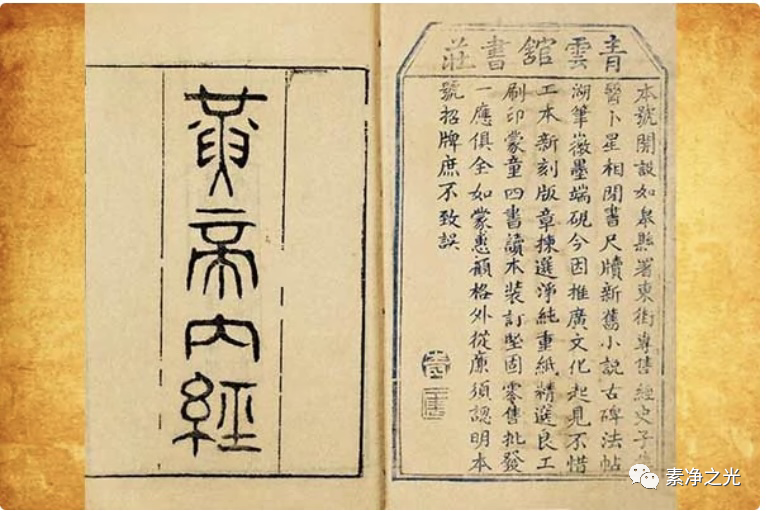 青雲舘書莊
本號開設如皋縣署東街專售經史子
醫卜星相閒書尺牘新舊小說古碑法帖
湖筆徽墨端硯今因推廣文化起見不惜
工本新刻版章揀選淨純重紙精選良工
刷印蒙童四書讀本裝訂堅固零售批發
一應俱全如蒙惠顧格外從廉須認明本
號招牌庶不致誤
黃帝內經
素净之光